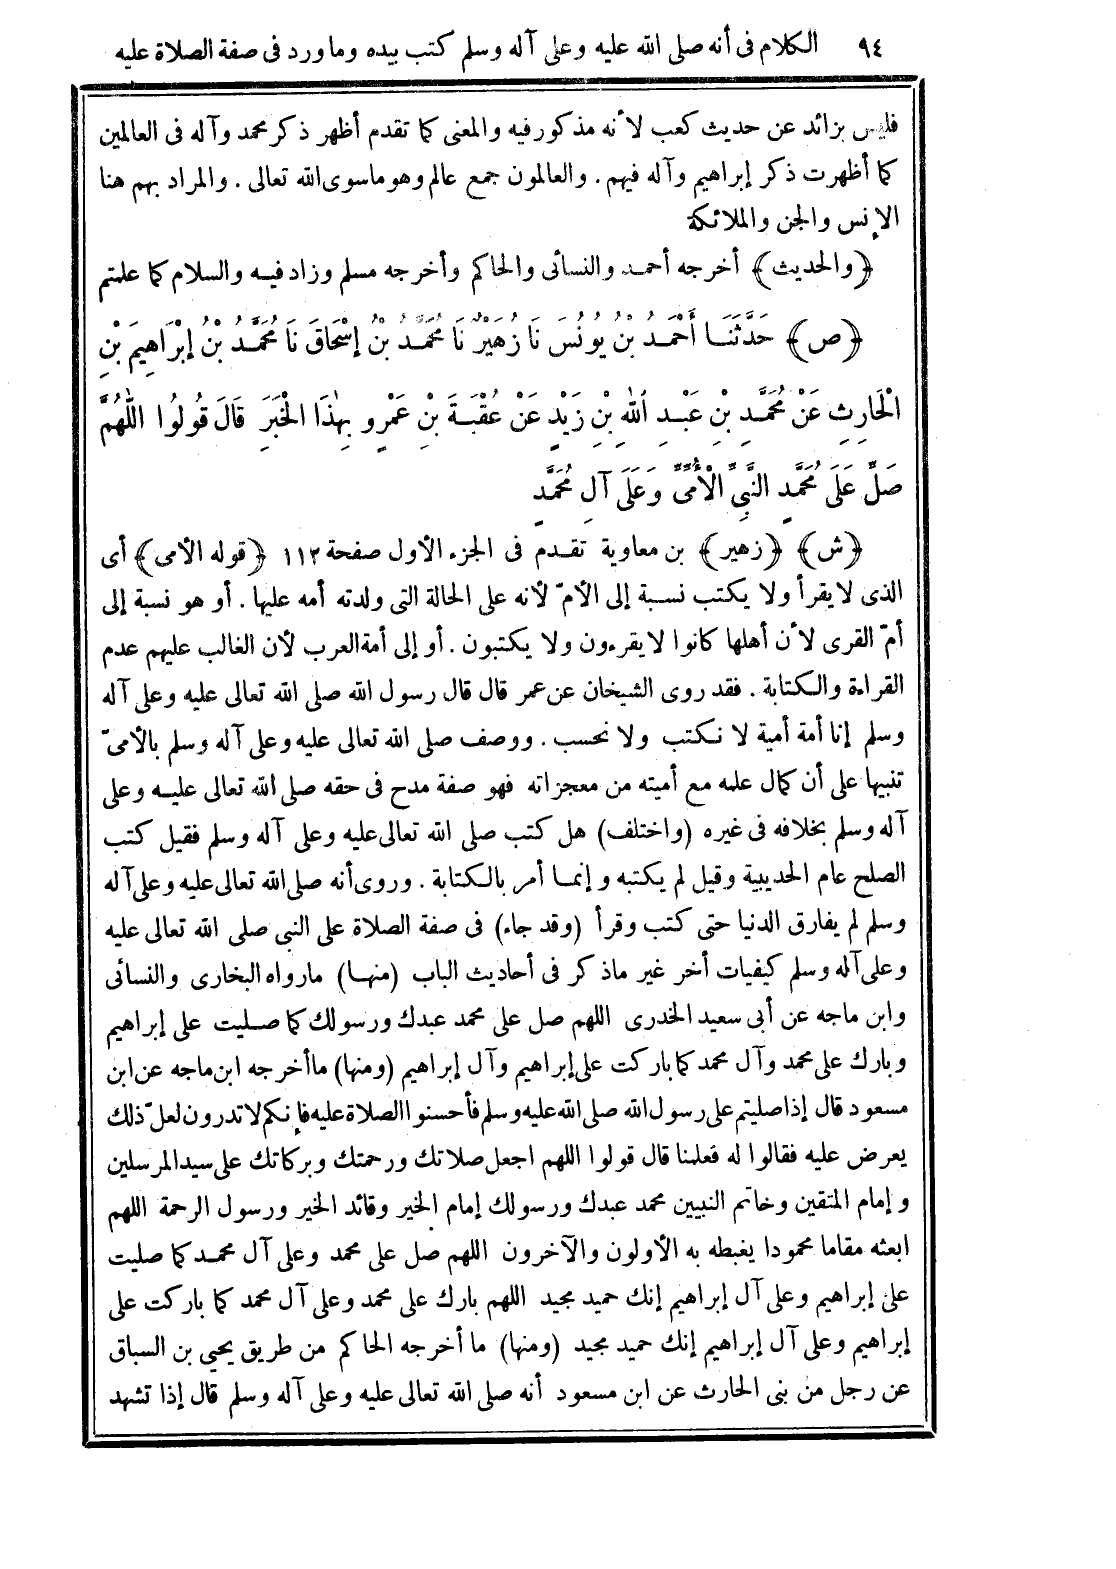 ٩٤ الكلام فى أنه صلى الله عليه وعلى آله وسلم كتب بيده وما ورد فى صفة الصلاة عليه
فليس بزائد عن حديث كعب لأنه مذكور فيه والمعنى كما تقدم أظهر ذكر محمد وآله فى العالمين
كما أظهرت ذكر إبراهيم وآله فيهم . والعالمون جمع عالم وهو ماسوى الله تعالى . والمراد بهم هنا
الإنس والجن والملائكة
﴿والحديث﴾ أخرجه أحمد والنسائى والحاكم وأخرجه مسلم وزاد فيه والسلام كما علمتم
﴿ص﴾ حَدَّثَنَا أَحْمَدُ بْنُ يُونُسَ نَا زُهَيْرٌ نَا مُحَمَّدُ بْنُ إِسْحَاقَ نَا مُحَمَّدُ بْنُ إِبْرَاهِيمَ بْنِ
الْحَارِثِ عَنْ مُحَمَّدِ بْنِ عَبْدِ اللهِ بْنِ زَيْدٍ عَنْ عُقْبَةَ بْنِ عَمْرٍو بِهٰذَا الْخَبَرِ قَالَ قُولُوا اللّٰهُمَّ
صَلِّ عَلَى مُحَمَّدٍ النَّبِىِّ الْأُمِّىِّ وَعَلَى آلِ مُحَمَّدٍ
﴿ش﴾ ﴿زهير﴾ بن معاوية تقدم فى الجزء الأول صفحة ١١٢ ﴿قوله الأمى﴾ أى
الذى لا يقرأ ولا يكتب نسبة إلى الأمّ لأنه على الحالة التى ولدته أمه عليها . أو هو نسبة إلى
أمّ القرى لأن أهلها كانوا لا يقرءون ولا يكتبون . أو إلى أمة العرب لأن الغالب عليهم عدم
القراءة والكتابة . فقد روى الشيخان عن عمر قال قال رسول الله صلى الله تعالى عليه وعلى آله
وسلم إنا أمة أمية لا نكتب ولا نحسب . ووصف صلى الله تعالى عليه وعلى آله وسلم بالأمىّ
تنبيها على أن كمال علمه مع أميته من معجزاته فهو صفة مدح فى حقه صلى الله تعالى عليه وعلى
آله وسلم بخلافه فى غيره (واختلف) هل كتب صلى الله تعالى عليه وعلى آله وسلم فقيل كتب
الصلح عام الحديبية وقيل لم يكتبه وإنما أمر بالكتابة . وروى أنه صلى الله تعالى عليه وعلى آله
وسلم لم يفارق الدنيا حتى كتب وقرأ (وقد جاء) فى صفة الصلاة على النبى صلى الله تعالى عليه
وعلى آله وسلم كيفيات أخر غير ماذكر فى أحاديث الباب (منها) مارواه البخارى والنسائى
وابن ماجه عن أبى سعيد الخدرى اللهم صل على محمد عبدك ورسولك كما صليت على إبراهيم
وبارك على محمد وآل محمد كما باركت على إبراهيم وآل إبراهيم (ومنها) ما أخرجه ابن ماجه عن ابن
مسعود قال إذا صليتم على رسول الله صلى الله عليه وسلم فأحسنوا الصلاة عليه فإنكم لاتدرون لعلّ ذلك
يعرض عليه فقالوا له فعلمنا قال قولوا اللهم اجعل صلاتك ورحمتك وبركاتك على سيد المرسلين
وإمام المتقين وخاتم النبيين محمد عبدك ورسولك إمام الخير وقائد الخير ورسول الرحمة اللهم
ابعثه مقاما محمودا يغبطه به الأولون والآخرون اللهم صل على محمد وعلى آل محمد كما صليت
على إبراهيم وعلى آل إبراهيم إنك حميد مجيد اللهم بارك على محمد وعلى آل محمد كما باركت على
إبراهيم وعلى آل إبراهيم إنك حميد مجيد (ومنها) ما أخرجه الحاكم من طريق يحيى بن السباق
عن رجل من بنى الحارث عن ابن مسعود أنه صلى الله تعالى عليه وعلى آله وسلم قال إذا تشهد